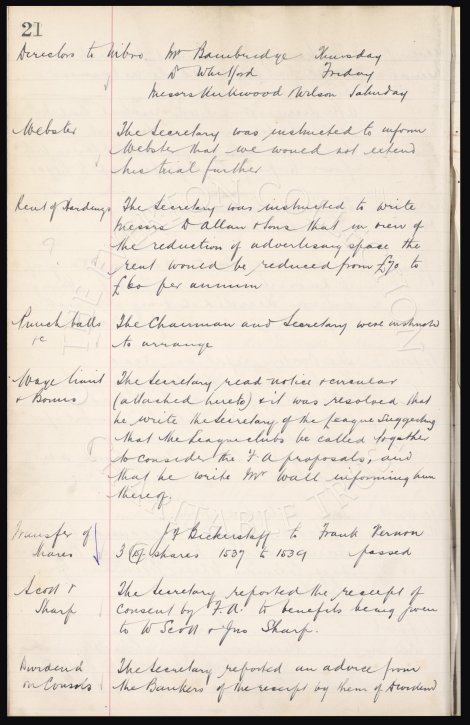 21
Directors to Nibro Mr Bainbridge Thursday
Dr Whitford Friday
Messrs Kirkwood Wilson Saturday
Webster The Secretary was instructed to inform
Webster that we would not extend
his trial further
Rent of Hoardings The Secretary was instructed to write
Messrs D Allan & Sons that in view of
? the reduction of advertising space the
rent would be reduced from £70 to
£60 per annum
Punch balls The Chairman and Secretary were instructed
&c to arrange
Wage limit The Secretary read notice & circular
& Bonus (attached hereto) & it was resolved that
he write the Secretary of the League suggesting
that the League clubs be called together
to consider the F A proposals, and
that he write Mr Wall informing him
thereof
Transfer of J J Bickerstaff to Frank Vernon
Shares 3 shares 1537 to 1539 passed
Scott & The Secretary reported the receipt of
Sharp consent by F.A. to benefits being given
to W Scott & Jno Sharp.
Dividend The Secretary reported an advice from
on Consols the Bankers of the receipt by them of Dividend
CHARITABLE TRUST